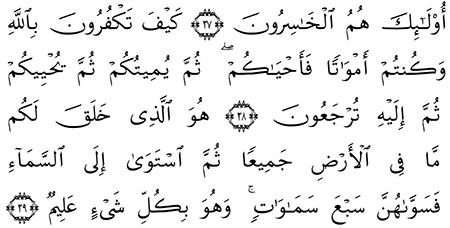 أُوْلَـٰٓئِكَ هُمُ ٱلْخَـٰسِرُونَ ﴿٢٧﴾ كَيْفَ تَكْفُرُونَ بِٱللَّهِ
وَكُنتُمْ أَمْوَٰتًا فَأَحْيَـٰكُمْ ۖ ثُمَّ يُمِيتُكُمْ ثُمَّ يُحْيِيكُمْ
ثُمَّ إِلَيْهِ تُرْجَعُونَ ﴿٢٨﴾ هُوَ ٱلَّذِى خَلَقَ لَكُم
مَّا فِى ٱلْأَرْضِ جَمِيعًا ثُمَّ ٱسْتَوَىٰٓ إِلَى ٱلسَّمَآءِ
فَسَوَّىٰهُنَّ سَبْعَ سَمَـٰوَٰتٍ ۚ وَهُوَ بِكُلِّ شَىْءٍ عَلِيمٌ ﴿٢٩﴾